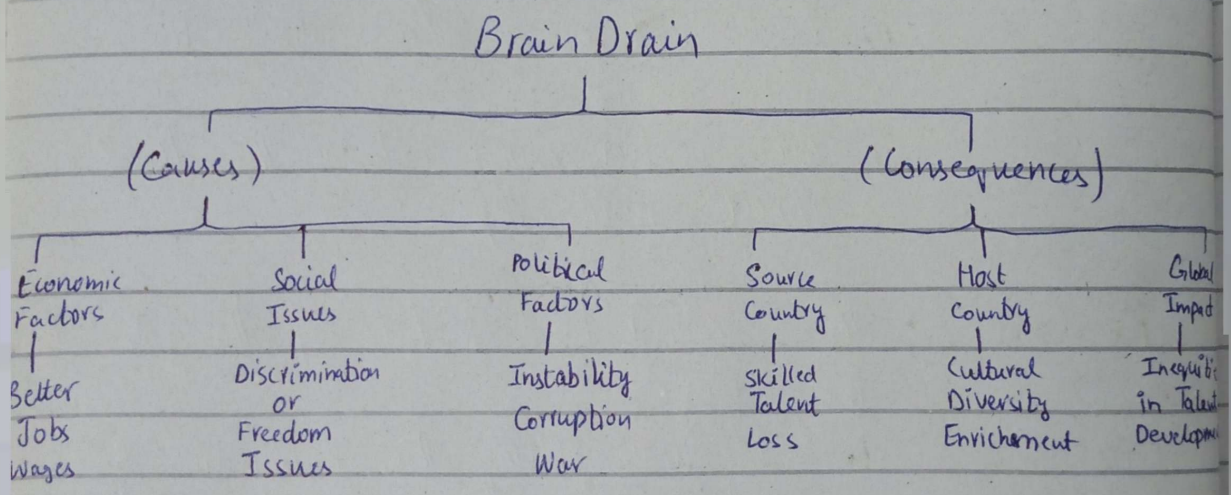 Brain Drain
(Causes)
(Consequences)
Economic
Factors
Better
Jobs
Wages
Social
Issues
Discrimination
or
Freedom
Issues
Political
Factors
Instability
Corruption
War
Source
Country
Skilled
Talent
Loss
Host
Country
Cultural
Diversity
Enrichement
Global
Impact
in Talent